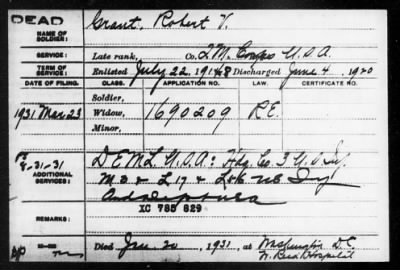 DEAD
NAME OF SOLDIER: Grant, Robert V.
SERVICE: Late rank, Co. Q.M. Corps U.S.A.
TERM OF SERVICE: Enlisted July 22, 1918 Discharged June 4, 1920
DATE OF FILING. CLASS. APPLICATION NO. LAW. CERTIFICATE NO.
Soldier,
1931 Mar 23 Widow, 1690209 R.E.
Minor,
8-31-31 D.E.M.L. U.S.A: Hdq. Co. 3 U.S. Inf.
ADDITIONAL SERVICES: M 3 & L 17 & US Inf
XC 785 829
REMARKS:
Died Jan 20, 1931, at Washington D.C.